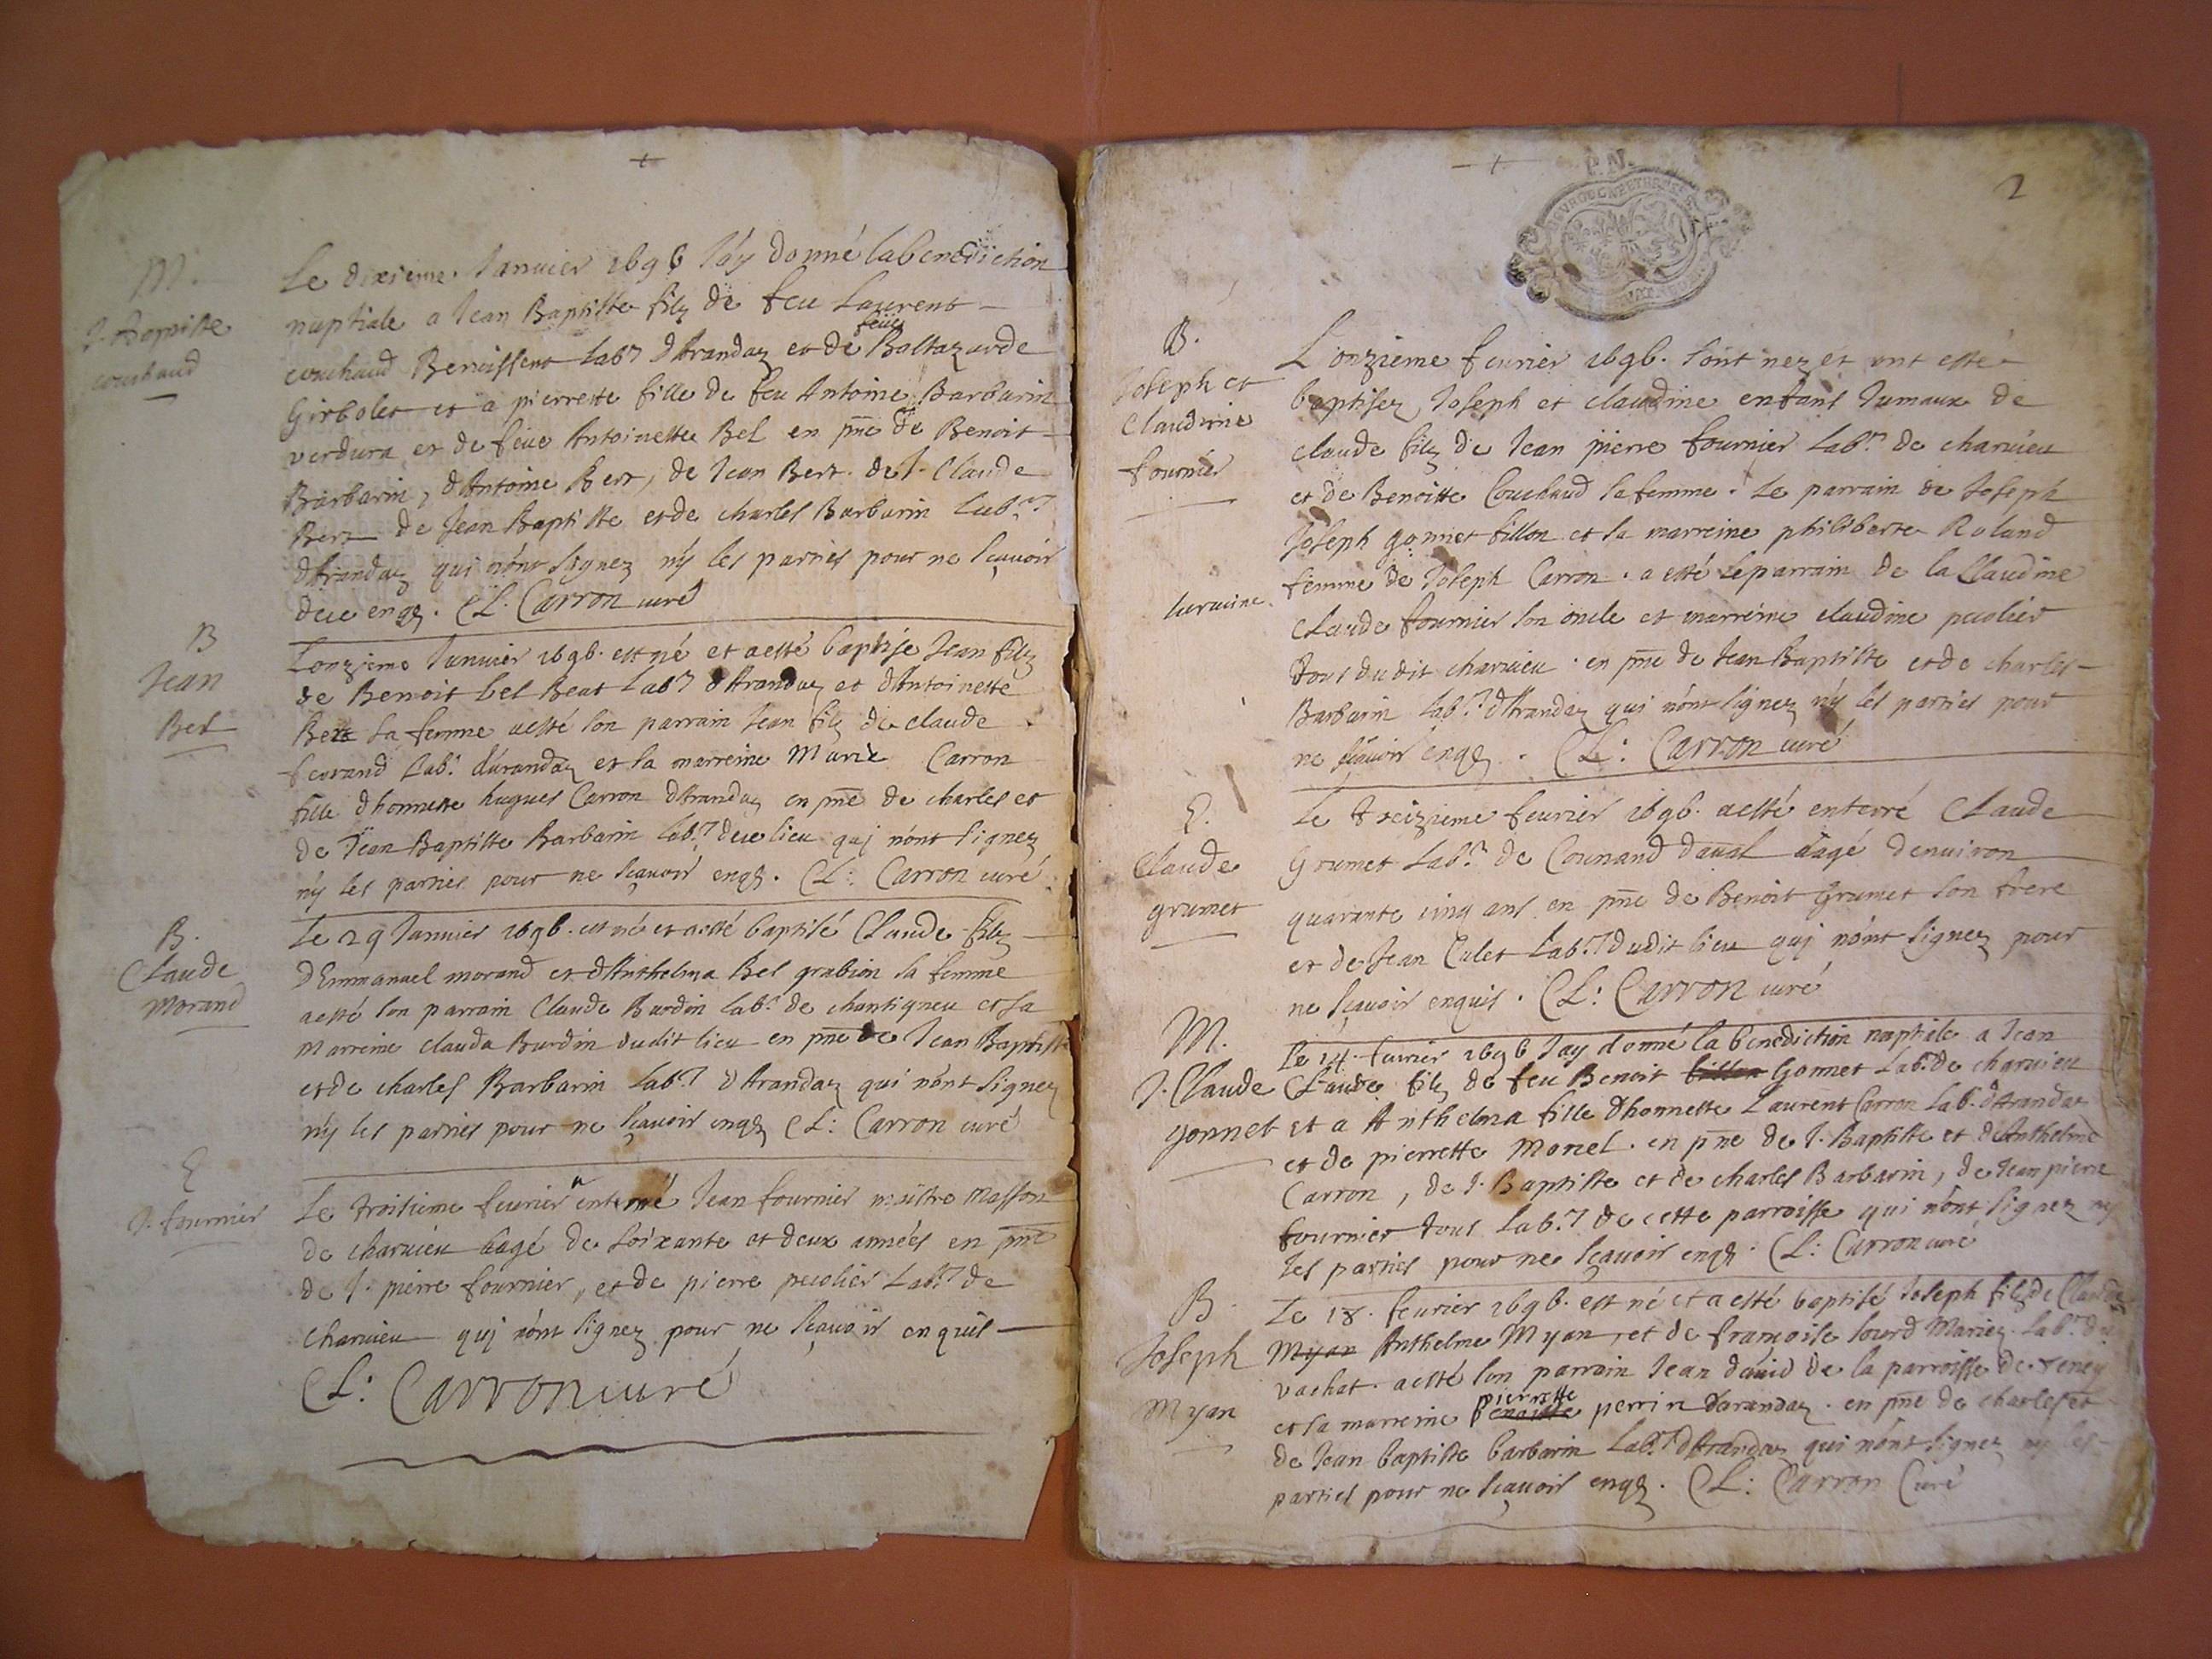 M.
J. Baptiste
couchaud
Le dixieme. Januier 1696 J'ay donné la benediction
nuptiale a Jean Baptiste filz de feu Laurent
couchaud Benoissent labr d'Arandaz et de feüe Baltazarde
Girbolet et a pierrette fille de feu Antoine Barbarin
verdura et de feüe Antoinette Bel en pñce de Benoit
Barbarin, d'Antoine Bert, de Jean Bert. de J. Claude
Bert de Jean Baptiste et de charles Barbarin Labrs
d'Arandaz qui n'ont signez n'y les parties pour ne sçavoir
de ce enqs. CL. Carron curé
B
Jean
Bel
L'onzieme Januier 1696. est né et a esté baptisé Jean filz
de Benoit bel Beat Labr d'Arandaz et d'Antoinette
Bert sa femme a esté son parrain Jean filz de claude
ferrand Labr. d'arandaz et sa marreine Marie Carron
fille d'honneste hugues Carron d'Arandaz en pñce de charles et
de Jean Baptiste Barbarin labrs de ce lieu quj n'ont signez
n'y les parties pour ne sçavoir enqs. CL: Carron curé
B.
Claude
Morand
Le 29 Januier 1696. est né et a esté baptisé Claude filz
d'Emmanuel morand et d'Anthelma Bel grabion sa femme
a esté son parrain Claude Burdin labr. de chantigneu et sa
Marreine clauda Burdin dudit lieu en pñce de Jean Baptiste
et de charles Barbarin labrs d'Arandaz qui n'ont signez
n'y les parties pour ne sçavoir enqs CL: Carron curé
E
J. fournier
Le troisieme feurier a enterré Jean fournier maistre Masson
de charuieu aagé de soixante et deux années en pñce
de J. pierre fournier, et de pierre pecolier Labrs de
charuieu quj n'ont signez pour ne sçauoir enquis
CL: Carron curé
2
B.
Joseph et
Claudine
fournier
L'onzieme feurier 1696. sont nez et ont esté
baptisez Joseph et claudine enfans Jumaux de
claude filz de Jean pierre fournier Labr. de charuieu
et de Benoitte Couchaud sa femme. Le parrain de Joseph
Joseph gonnet fillon et sa marreine philiberte Roland
femme de Joseph Carron. a esté le parrain de la Claudine
claude fournier son oncle et marreine claudine pecolier
tous du dit charuieu. en pñce de Jean Baptiste et de charles
Barbarin labrs d'Arandaz qui n'ont signez n'y les parties pour
ne sçauoir enqs. CL: Carron curé
E.
Claude
grumet
Le treizieme feurier 1696. a esté enterré Claude
Grumet labr. de Counand d'aual aagé d'enuiron
quarante cinq ans en pñce de Benoit Grumet son frere
et de Jean Culet Labrs dudit lieu quj n'ont signez pour
ne sçauoir enquis. CL: Carron curé
M.
J. Claude
gonnet
Le 14. feurier 1696 J'ay donné la benediction nuptiale a Jean
Claude filz de feu Benoit fillon Gonnet Labr. de charuieu
et a Anthelma fille d'honneste Laurent Carron lab. d'Arandaz
et de pierrette Morel. en pñce de J. Baptiste et d'Anthelme
Carron, de J. Baptiste et de charles Barbarin, de Jean pierre
fournier tous Labrs de cette parroisse qui n'ont signez ny
les parties pour ne sçavoir enqs. CL: Carron curé
B.
Joseph
Myan
Le 18. feurier 1696. est né et a esté baptisé Joseph filz de Claude
Myan Anthelme Myan, et de françoise lourd Mariez. labrs du
vachat. a esté son parrain Jean dauid de la parroisse de
et sa marreine benoitte pierrette perrin d'arandaz. en pñce de charles et
de Jean baptiste barbarin Labrs d'Arandaz qui n'ont signez ny les
parties pour ne sçauoir enqs. CL: Carron Curé